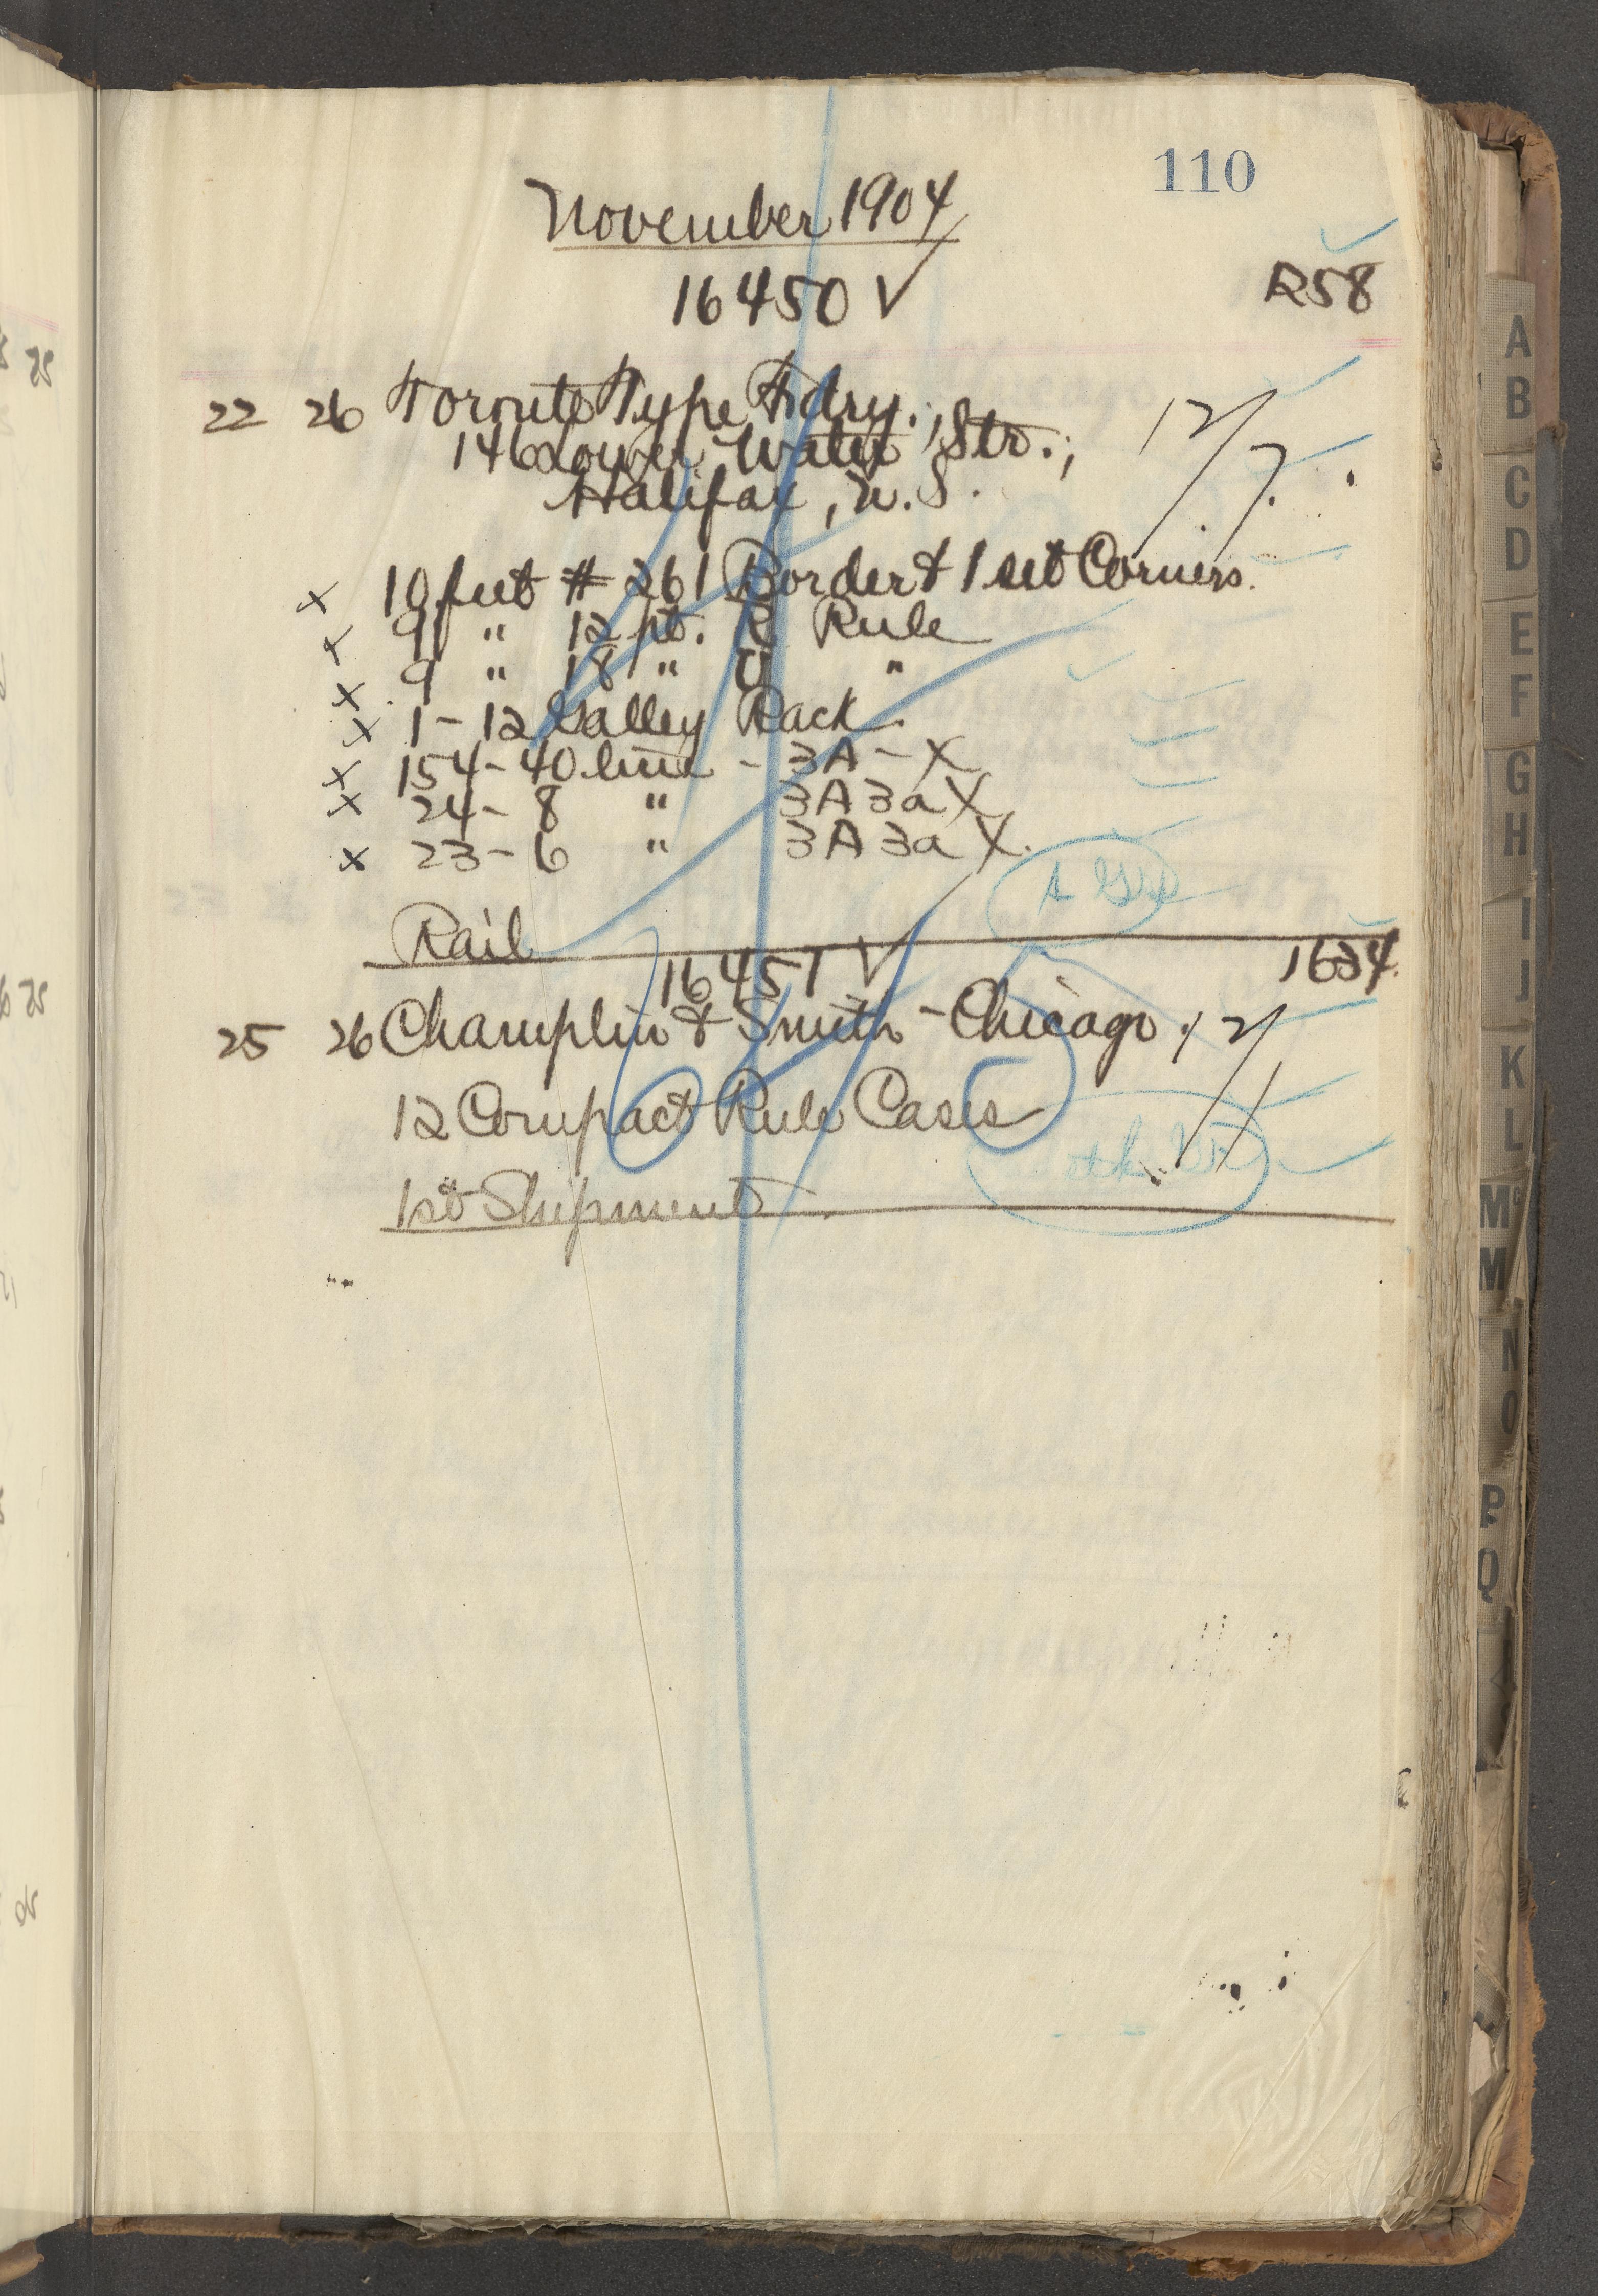 110
November 1904
16450 √ R58
22 26 Toronto Type Fdry. 12/7.
146 Lower Water Str.,
Halifax, N.S.
x 10 feet # 261 Border & 1 set Corners.
x 9 " 12 pt. R Rule
x 9 " 18 " U "
x 1-12 Galley Rack.
x 154-40 line - 3A - X
x 24- 8 " 3A 3a X
x 23- 6 " 3A 3a X.
Rail
16451 √ 1634.
25 26 Champlin & Smith - Chicago. 12/1
12 Compact Rule Cases
1st Shipment.
A
B
C
D
E
F
G
H
I
J
K
L
Mc
M
N
O
P
Q